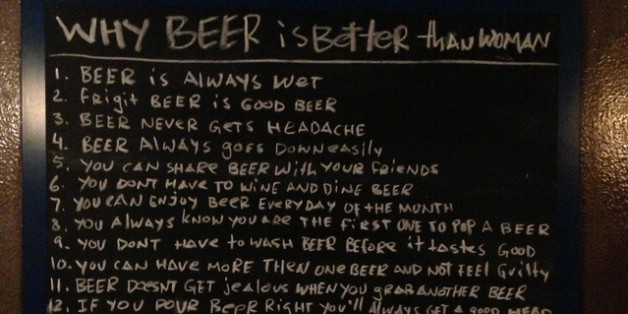 WHY BEER iS BETTER thAN WOMAN
1. BEER iS ALWAYS WET
2. Frigit BEER iS GOOD BEER
3. BEER NEVER GETS HEADACHE
4. BEER ALWAYS GOES DOWN EASily
5. YOU CAN SHARE BEER With YOUR FRiENDS
6. YOU DONT HAVE TO WiNE AND DiNE BEER
7. YOU CAN ENJOY BEER EVERYDAY OF tHE MONTH
8. YOU ALWAYS KNOW YOU ARE THE FiRST ONE TO POP A BEER
9. YOU DONT HAVE to WASH BEER BEFORE it tASTES GOOD
10. YOU CAN HAVE MORE THEN ONE BEER AND NOT FEEL GUilty
11. BEER DOESNT GET jEALOUS WHEN YOU GRAB ANOTHER BEER
12. IF YOU POUR BEER RIGHT YOU'll ALWAYS GET A GOOD HEAD